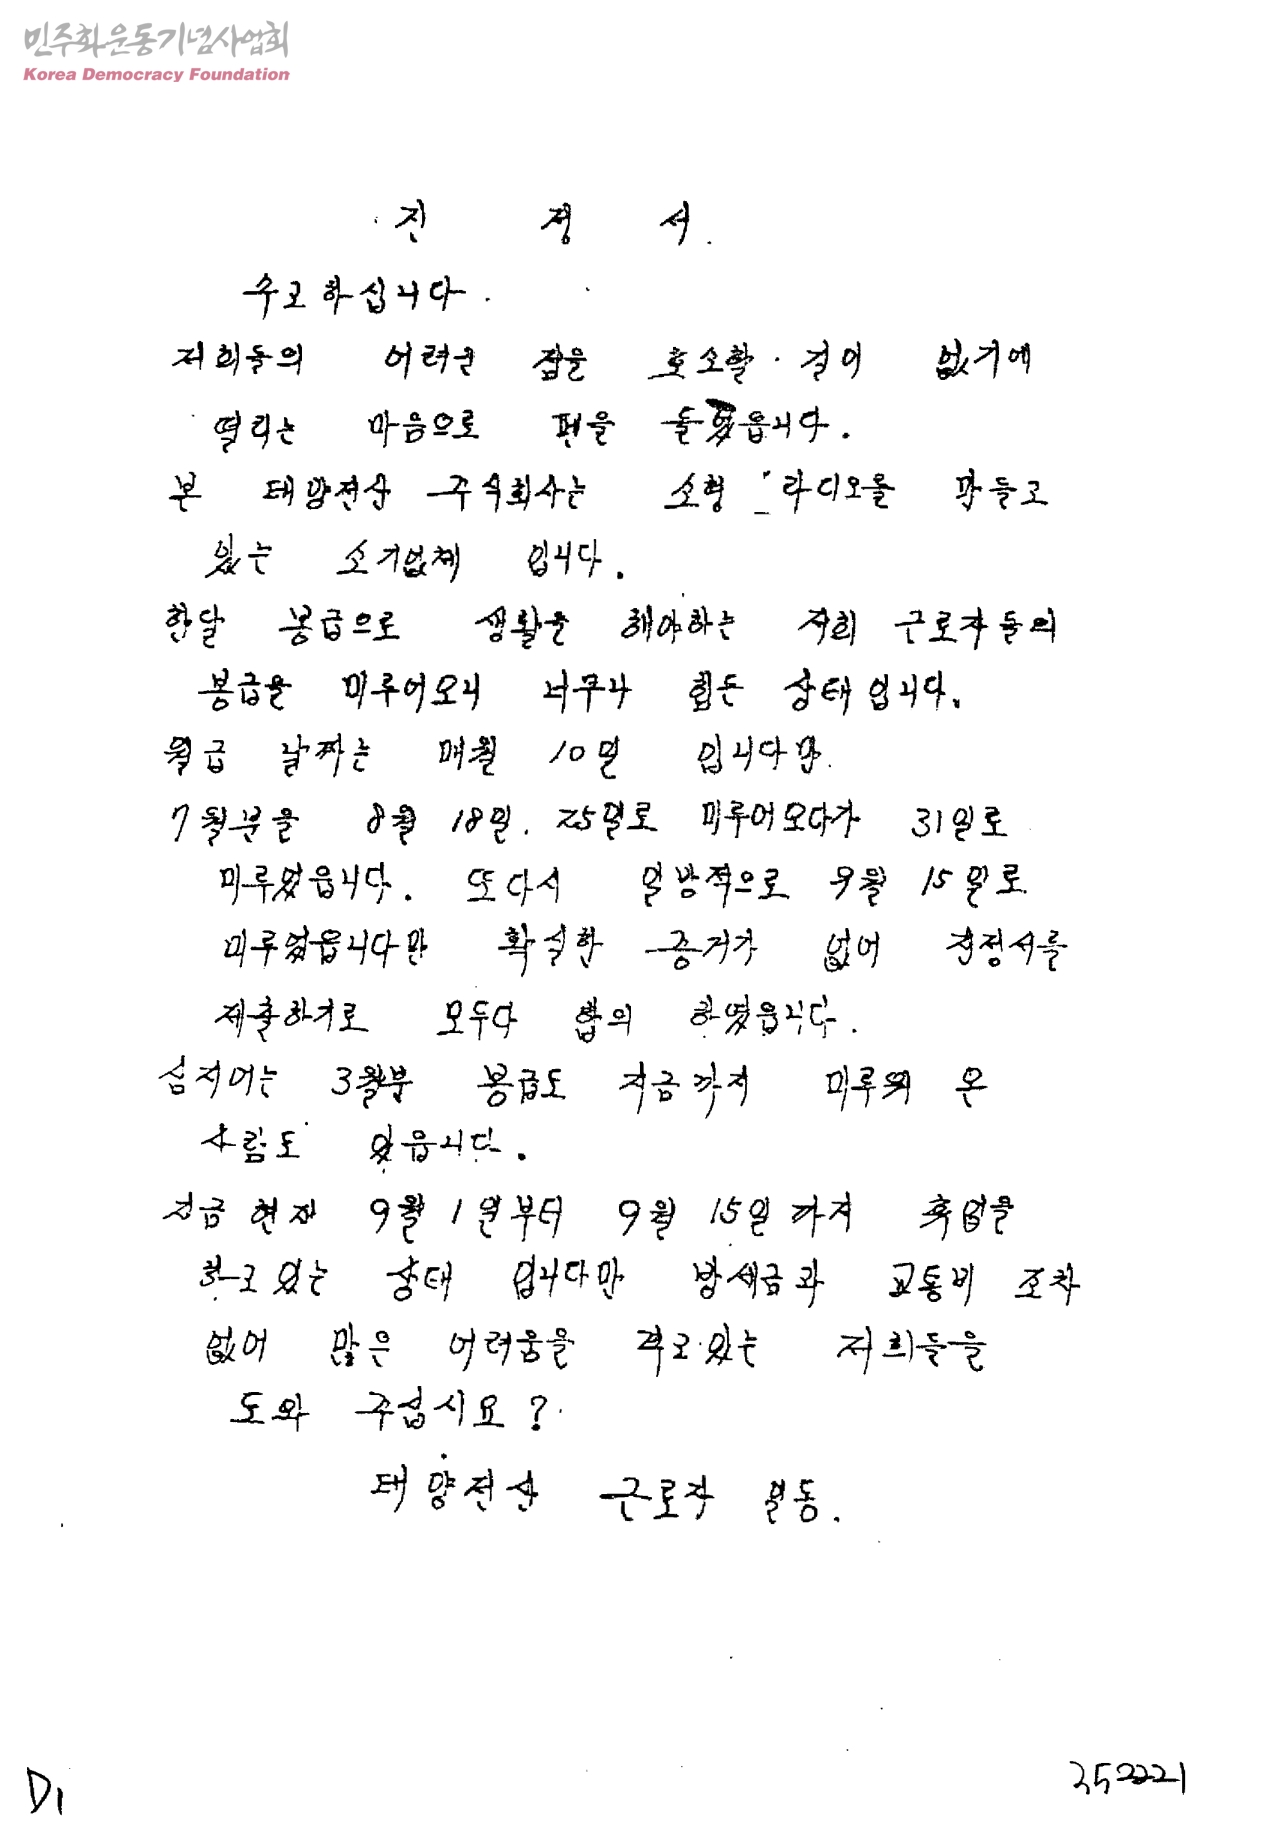 민주화운동기념사업회
Korea Democracy Foundation
진 정 서.
수고하십니다.
저희들의 어려운 점을 호소할 길이 없기에
떨리는 마음으로 펜을 들었읍니다.
본 태양전산 주식회사는 소형 라디오를 만들고
있는 소기업체 입니다.
한달 봉급으로 생활을 해야하는 저희 근로자들의
봉급을 미루어오니 너무나 힘든 상태입니다.
월급 날짜는 매월 10일 입니다만.
7월분을 8월 18일. 25일로 미루어오다가 31일로
미루었읍니다. 또다시 일방적으로 9월 15일로
미루었읍니다만 확실한 증거가 없어 진정서를
제출하기로 모두다 합의 하였읍니다.
심지어는 3월분 봉급도 지금까지 미루워 온
사람도 있읍니다.
지금 현재 9월 1일부터 9월 15일까지 휴업을
하고 있는 상태 입니다만 방세금과 교통비 조차
없어 많은 어려움을 격고있는 저희들을
도와 주십시요?
태양전산 근로자 일동.
D1
352221